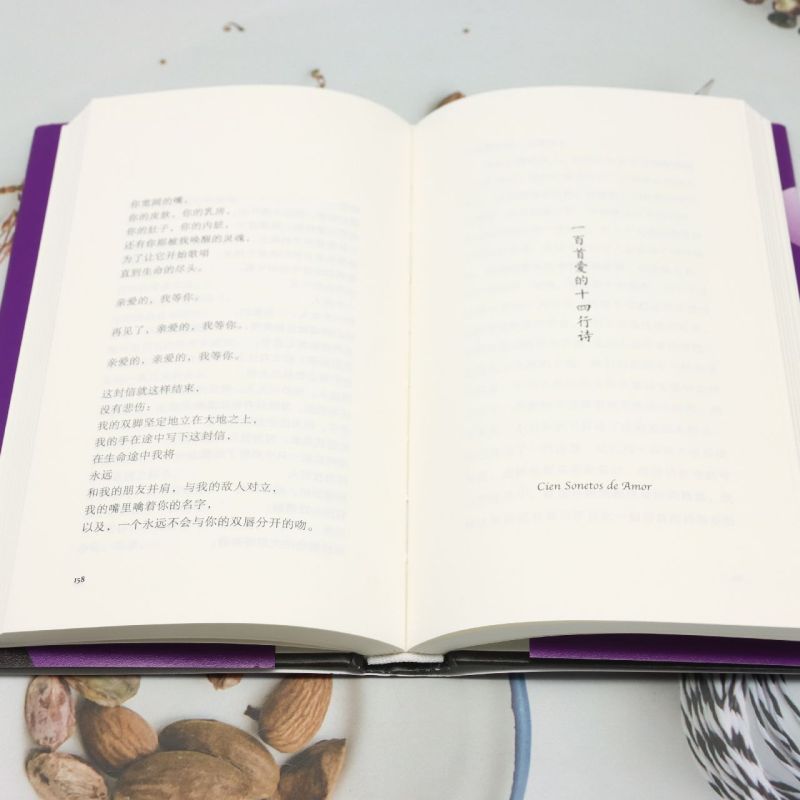 你宽阔的嘴，
你的皮肤，你的乳房，
你的肚子，你的内脏，
还有你那被我唤醒的灵魂，
为了让它开始歌唱
直到生命的尽头。
亲爱的，我等你。
再见了，亲爱的，我等你。
亲爱的，亲爱的，我等你。
这封信就这样结束，
没有悲伤：
我的双脚坚定地立在大地之上，
我的手在途中写下这封信，
在生命途中我将
永远
和我的朋友并肩，与我的敌人对立，
我的嘴里噙着你的名字，
以及，一个永远不会与你的双唇分开的吻。
158
一百首爱的十四行诗
Cien Sonetos de Amor